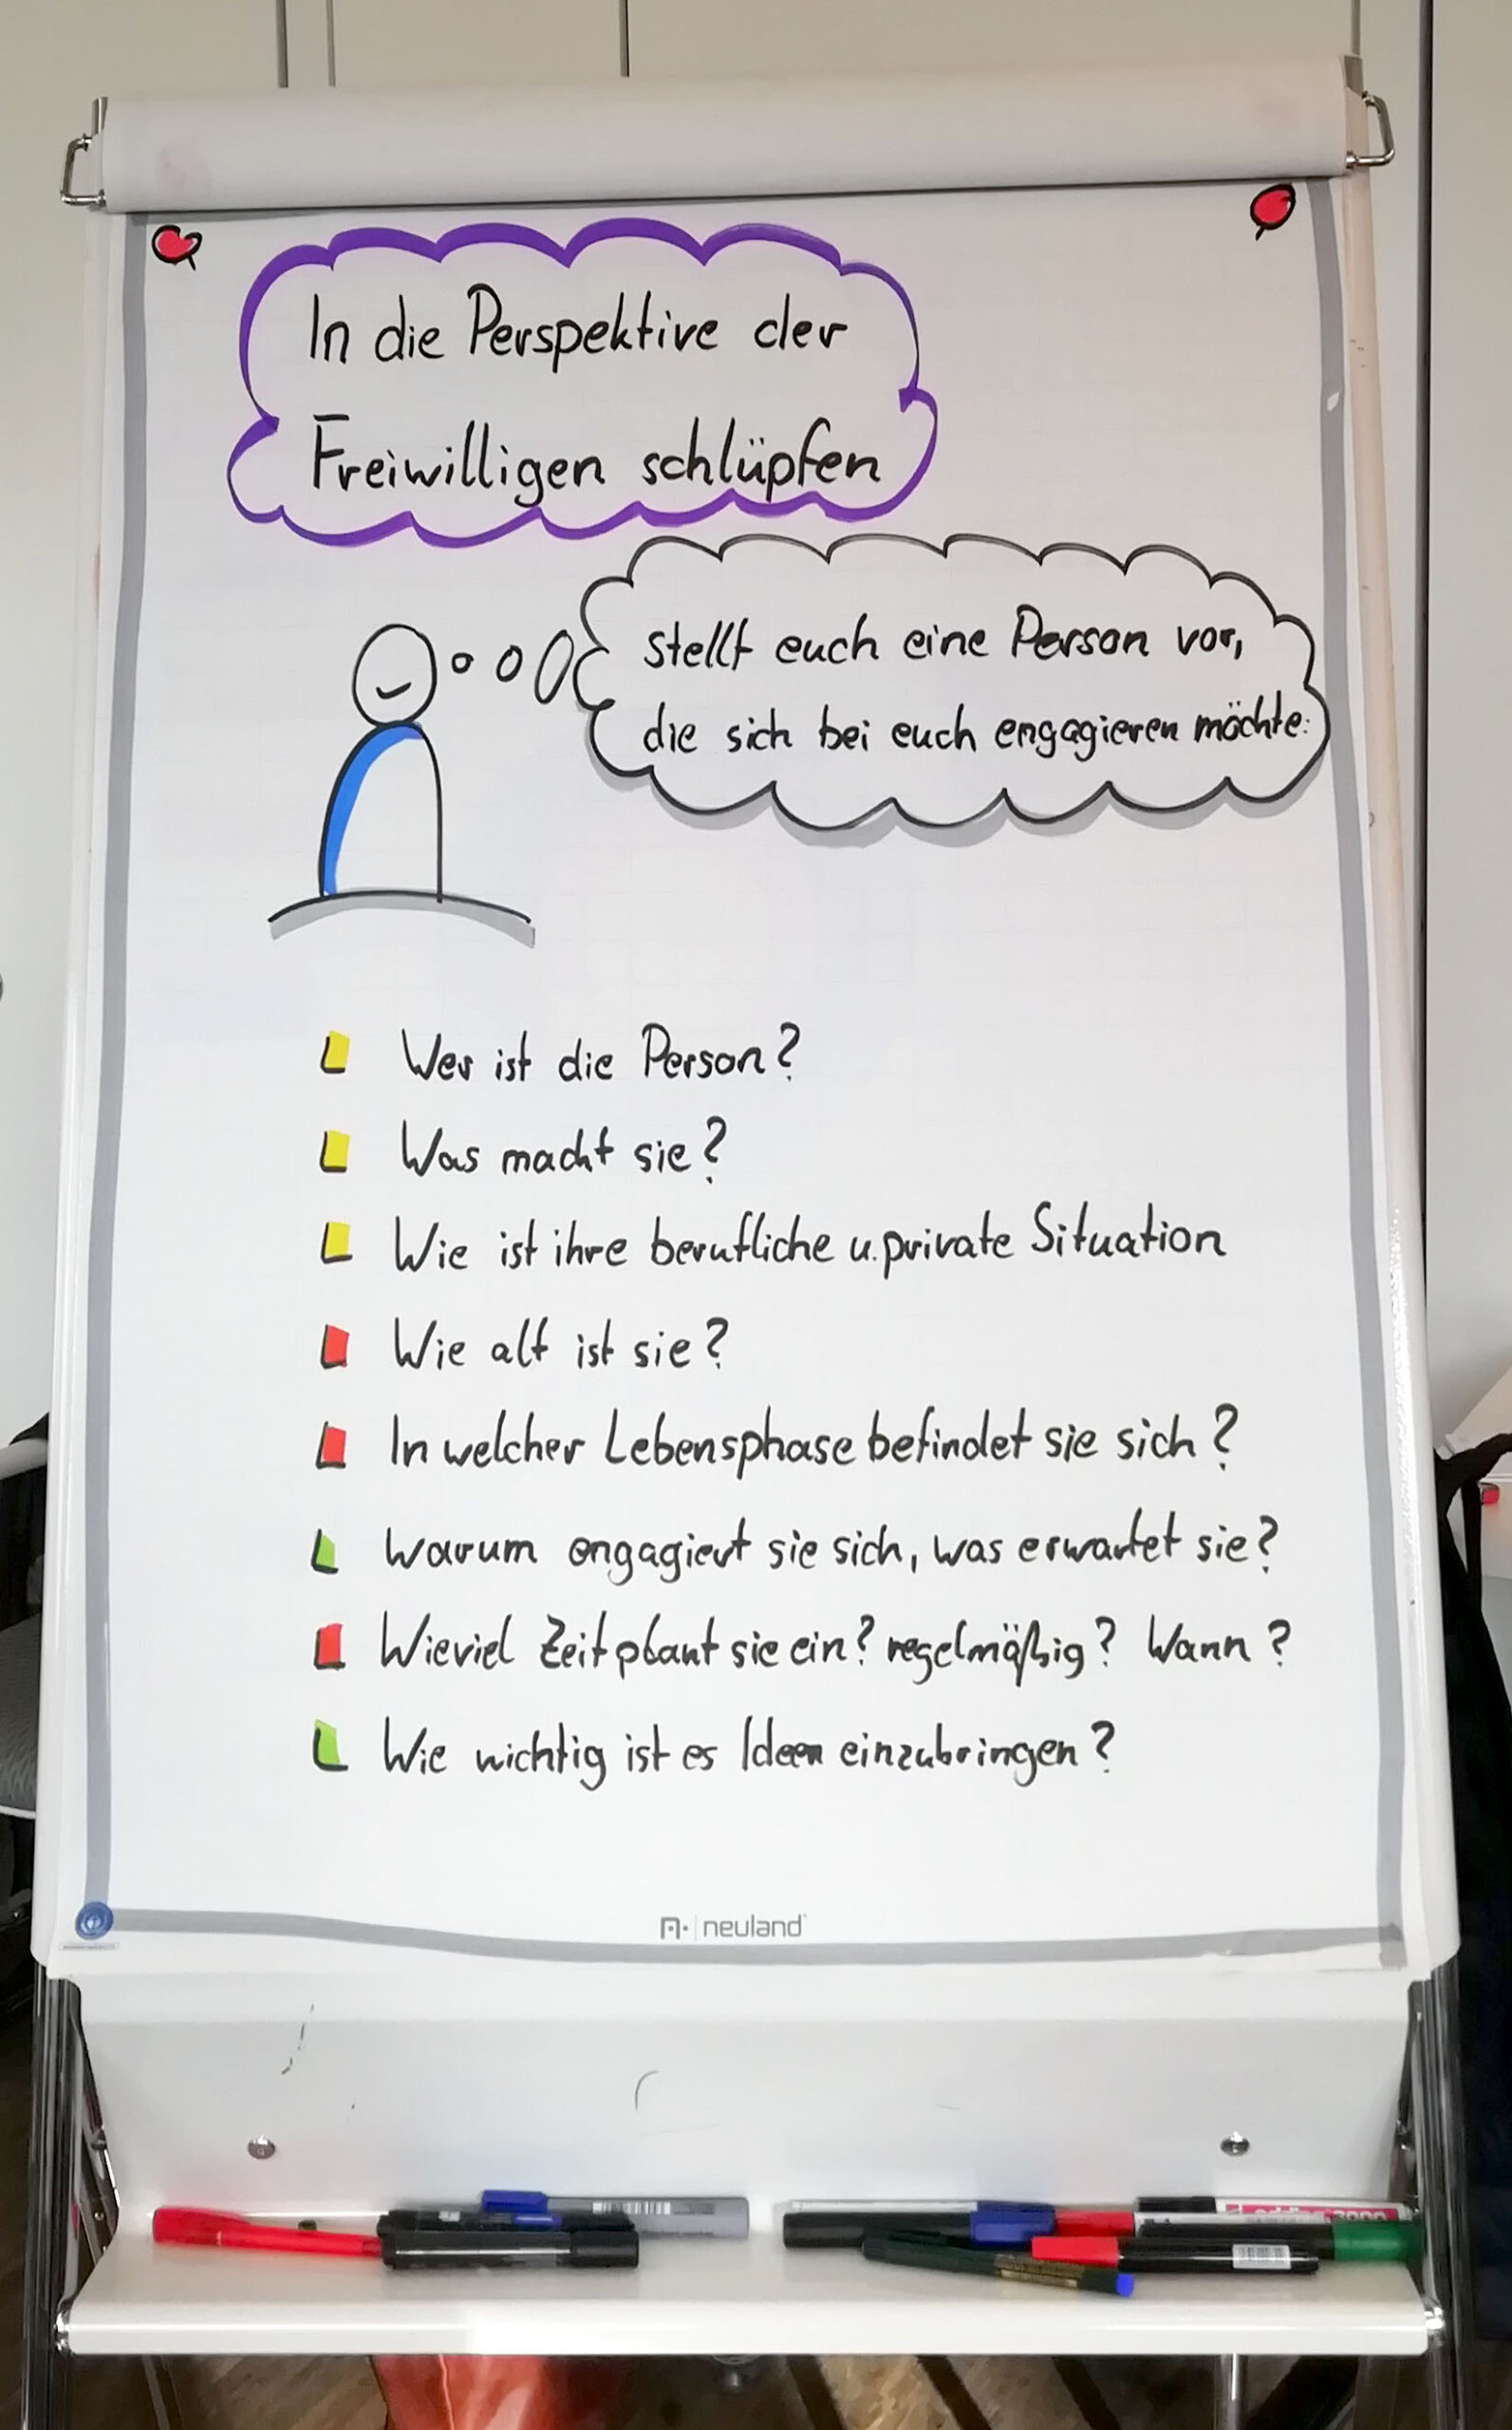 In die Perspektive der
Freiwilligen schlüpfen
stellt euch eine Person vor,
die sich bei euch engagieren möchte.
Wer ist die Person?
Was macht sie?
Wie ist ihre berufliche u. private Situation
Wie alt ist sie?
In welcher Lebensphase befindet sie sich?
Warum engagiert sie sich, was erwartet sie?
Wieviel Zeit plant sie ein? regelmäßig? Wann?
Wie wichtig ist es Ideen einzubringen?
neuland